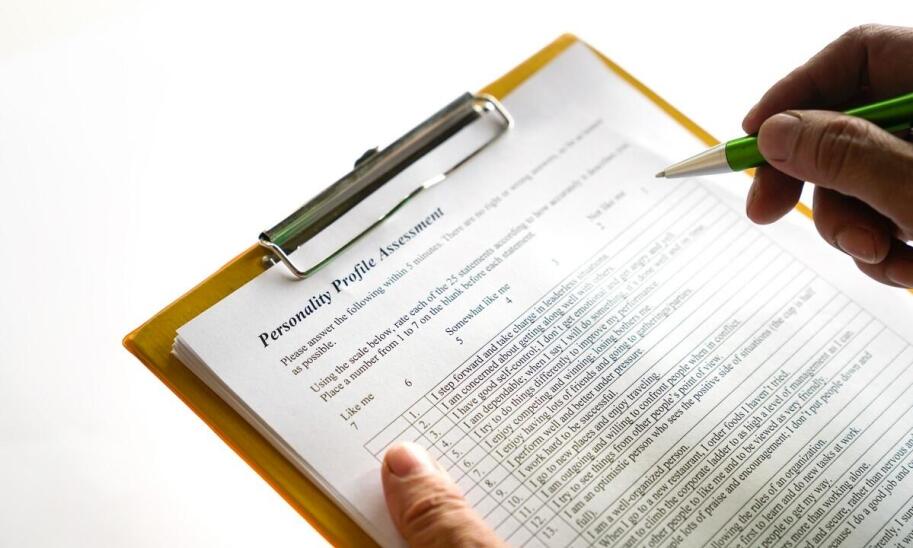 Personality Profile Assessment
Please answer the following within 5 minutes. There are no right or wrong answers,
as possible.
Using the scale below, rate each of the 25 statements according to how accurately it describes
Place a number from 1 to 7 on the blank before each statement.
Like me Somewhat like me Not like me
7 6 5 4 3 2 1
1. I step forward and take charge in leaderless situations.
2. I am concerned about getting along well with others.
3. I have good self-control; I don't get emotional and get angry and yell.
4. I am dependable; when I say I will do something, it is done well and on time.
5. I try to do things differently to improve my performance.
6. I enjoy competing and winning; losing bothers me
7. I enjoy having lots of friends and going to gatherings/parties.
8. I perform well and better under pressure.
9. I work hard to be successful.
10. I go to new places and enjoy traveling.
11. I am outgoing and willing to confront people when in conflict.
12. I try to see things from other people's point of view.
13. I am an optimistic person who sees the positive side of situations (the cup is half
full).
I am a well-organized person.
When I go to a new restaurant, I order foods I haven't tried.
want to climb the corporate ladder to as high a level of management as I can.
other people to like me and to be viewed as very friendly.
people lots of praise and encouragement; I don't put people down and
following the rules of an organization.
first to learn and do new tasks at work.
people to get my way.
ers more than working alone.
and secure, rather than nervous
because I do a good job and